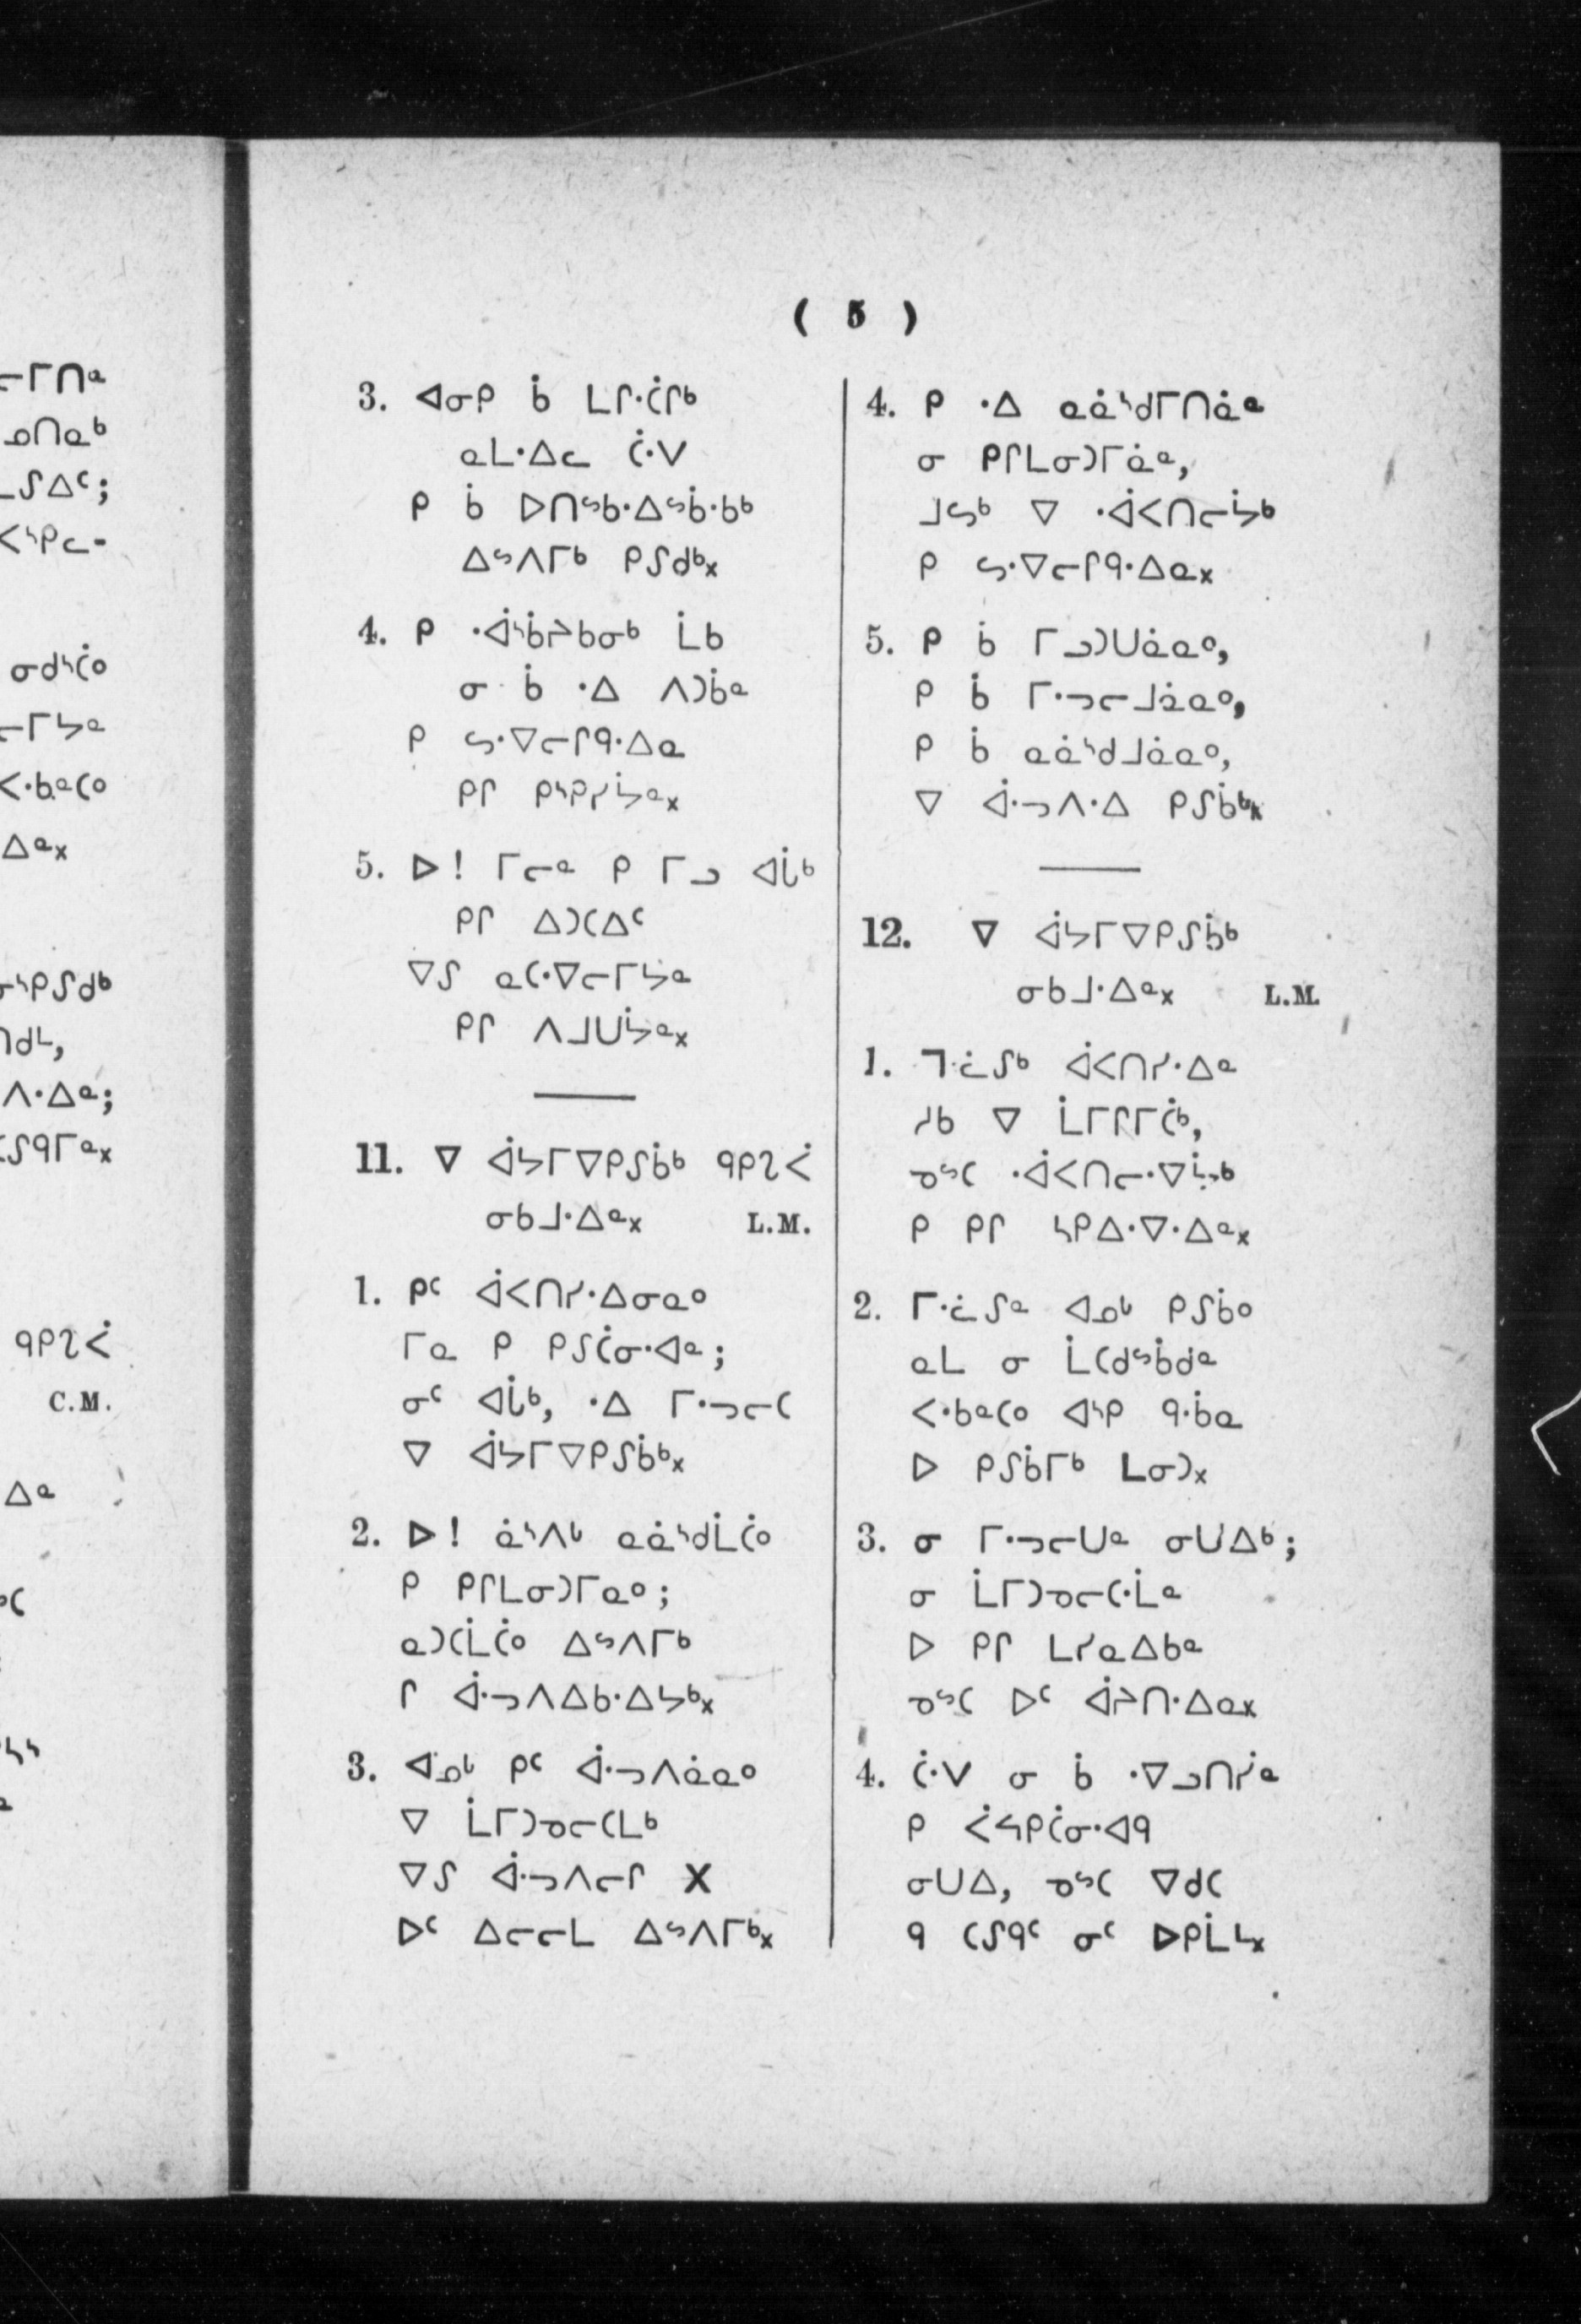 ( 5 )
3. ᐊᓂᑭ ᑳ ᒪᒋᐧᑖᒋᒃ
ᓇᒪᐧᐃᓚ ᑖᐧᐯ
ᑭ ᑳ ᐅᑎᔅᑲᐧᐃᔅᑳᐧᑲᒃ
ᐃᔅᐱᒥᒃ ᑭᔑᑯᒃ᙮
4. ᑭ ᐧᐋᔅᑳᔨᑲᓂᒃ ᒫᑲ
ᓂ ᑳ ᐧᐃ ᐱᑐᑳᓐ
ᑭ ᓴᐧᐁᓕᒋᑫᐧᐃᓇ
ᑭᒋ ᑭᔅᑭᓯᔮᓐ᙮
5. ᐅ! ᒥᓕᓐ ᑭ ᒥᓗ ᐊᒑᒃ
ᑭᒋ ᐃᑐᑕᐃᑦ
ᐁᔑ ᓇᑕᐧᐁᓕᒥᔭᓐ
ᑭᒋ ᐱᒧᑌᔮᓐ᙮
11. ᐁ ᐋᔭᒥᐁᑭᔑᑳᒃ ᑫᑭᔐᐹ
ᓂᑲᒧᐧᐃᓐ᙮ L.M.
1. ᑭᑦ ᐋᐸᑎᓯᐧᐃᓂᓇᐤ
ᒥᓇ ᑭ ᑭᔑᑖᓂᐧᐊᓐ;
ᓂᑦ ᐊᒑᒃ, ᐧᐃ ᒥᐧᓓᓕᑕ
ᐁ ᐋᔭᒥᐁᑭᔑᑳᒃ᙮
2. ᐅ! ᓈᔅᐱᒡ ᓇᓈᔅᑯᒫᑖᐤ
ᑭ ᑭᒋᒪᓂᑐᒥᓇᐤ;
ᓇᑐᑕᒫᑖᐤ ᐃᔅᐱᒥᒃ
ᒋ ᐋᐧᓓᐱᐃᑲᐧᐃᔭᒃ᙮
3. ᐊᓄᒡ ᑭᑦ ᐋᐧᓓᐱᓈᓇᐤ
ᐁ ᒫᒥᑐᓀᓕᑕᒪᒃ
ᐁᔑ ᐋᐧᓓᐱᓕᒋ X
ᐅᑦ ᐃᓕᓕᒪ ᐃᔅᐱᒥᒃ᙮
4. ᑭ ᐧᐃ ᓇᓈᔅᑯᒥᑎᓈᓐ
ᓂ ᑭᒋᒪᓂᑐᒥᓈᓐ,
ᒧᓴᒃ ᐁ ᐧᐋᐸᑎᓕᔮᒃ
ᑭ ᓴᐧᐁᓕᒋᑫᐧᐃᓇ᙮
5. ᑭ ᑳ ᒥᓗᑐᑌᓈᓇᐤ,
ᑭ ᑳ ᒥᐧᓓᓕᒧᓈᓇᐤ,
ᑭ ᑳ ᓇᓈᔅᑯᒧᓈᓇᐤ,
ᐁ ᐋᐧᓓᐱᐧᐃ ᑭᔑᑳᒃ᙮
12. ᐁ ᐋᔭᒥᐁᑭᔑᑳᒃ
ᓂᑲᒧᐧᐃᓐ᙮ L.M.
1. ᒣᐧᓛᔑᒃ ᐋᐸᑎᓯᐧᐃᓐ
ᓱᑲ ᐁ ᒫᒥᒋᒥᑖᒃ,
ᓀᔅᑕ ᐧᐋᐸᑎᓕᐧᐁᔮᒃ
ᑭ ᑭᒋ ᓴᑭᐃᐧᐁᐧᐃᓐ᙮
2. ᒥᐧᓛᔑᓐ ᐊᓄᒡ ᑭᔑᑳᐤ
ᓇᒪ ᓂ ᒫᑕᑯᔅᑳᑯᓐ
ᐸᐧᑲᓐᑕᐤ ᐊᔅᑭ ᑫᐧᑳᓇ
ᐅ ᑭᔑᑳᒥᒃ ᒪᓂᑐ᙮
3. ᓂ ᒥᐧᓓᓕᑌᓐ ᓂᑌᐃᒃ;
ᓂ ᒫᒥᑐᓀᓕᑕᐧᒫᓐ
ᐅ ᑭᒋ ᒪᓯᓇᐃᑲᓐ
ᓀᔅᑕ ᐅᑦ ᐋᔨᑎᐧᐃᓇ᙮
4. ᑖᐧᐯ ᓂ ᑳ ᐧᐁᓗᑎᓰᓐ
ᑭ ᐹᔭᑭᑖᓂᐧᐊᑫ
ᓂᑌᐃ, ᓀᔅᑕ ᐁᑯᑕ
ᑫ ᑕᔑᑫᑦ ᓂᑦ ᐅᑭᒫᒻ᙮